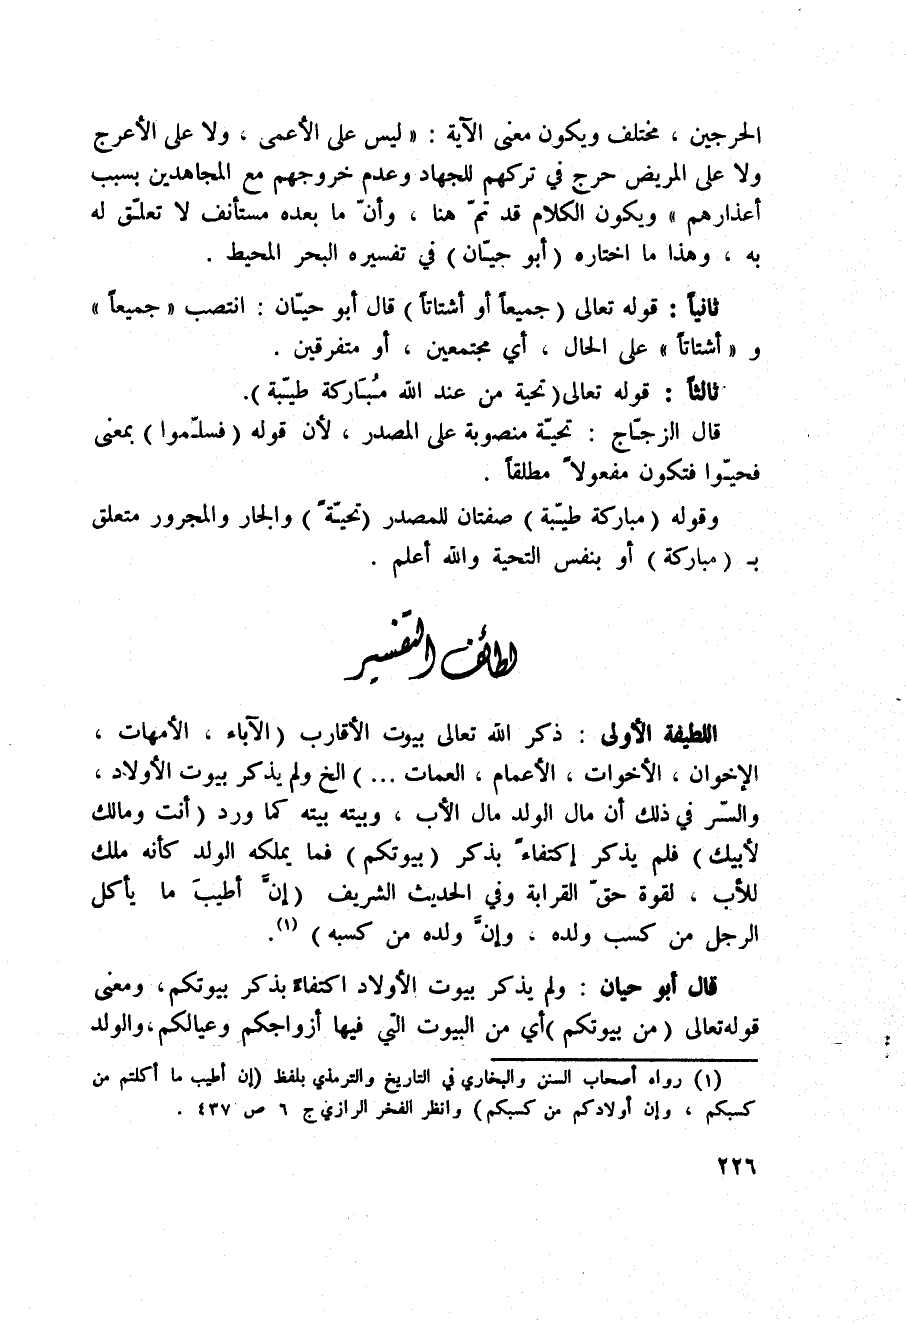 الحرجين ، مختلف ويكون معنى الآية : « ليس على الأعمى ، ولا على الأعرج
ولا على المريض حرج في تركهم للجهاد وعدم خروجهم مع المجاهدين بسبب
أعذارهم » ويكون الكلام قد تمّ هنا ، وأنّ ما بعده مستأنف لا تعلّق له
به ، وهذا ما اختاره ( أبو حيّان ) في تفسيره البحر المحيط .
ثانياً : قوله تعالى ( جميعاً أو أشتاتاً ) قال أبو حيّان : انتصب « جميعاً »
و « أشتاتاً » على الحال ، أي مجتمعين ، أو متفرقين .
ثالثاً : قوله تعالى ( تحية من عند الله مُبَاركة طيّبة ).
قال الزجّاج : تحيّة منصوبة على المصدر ، لأن قوله ( فسلّموا ) بمعنى
فحيّوا فتكون مفعولاً مطلقاً .
وقوله ( مباركة طيّبة ) صفتان للمصدر ( تحيّةً ) والجار والمجرور متعلق
بـ ( مباركة ) أو بنفس التحية والله أعلم .
لطائف التفسير
اللطيفة الأولى : ذكر الله تعالى بيوت الأقارب ( الآباء ، الأمهات ،
الإخوان ، الأخوات ، الأعمام ، العمات ... ) الخ ولم يذكر بيوت الأولاد ،
والسّر في ذلك أن مال الولد مال الأب ، وبيته بيته كما ورد ( أنت ومالك
لأبيك ) فلم يذكر إكتفاءً بذكر ( بيوتكم ) فما يملكه الولد كأنه ملك
للأب ، لقوة حقّ القرابة وفي الحديث الشريف ( إنَّ أطيبَ ما يأكل
الرجل من كسب ولده ، وإنَّ ولده من كسبه ) (١).
قال أبو حيان : ولم يذكر بيوت الأولاد اكتفاءً بذكر بيوتكم، ومعنى
قوله تعالى ( من بيوتكم ) أي من البيوت التي فيها أزواجكم وعيالكم، والولد
(١) رواه أصحاب السنن والبخاري في التاريخ والترمذي بلفظ (إن أطيب ما أكلتم من
كسبكم ، وإن أولادكم من كسبكم) وانظر الفخر الرازي ج ٦ ص ٤٣٧ .
٢٢٦